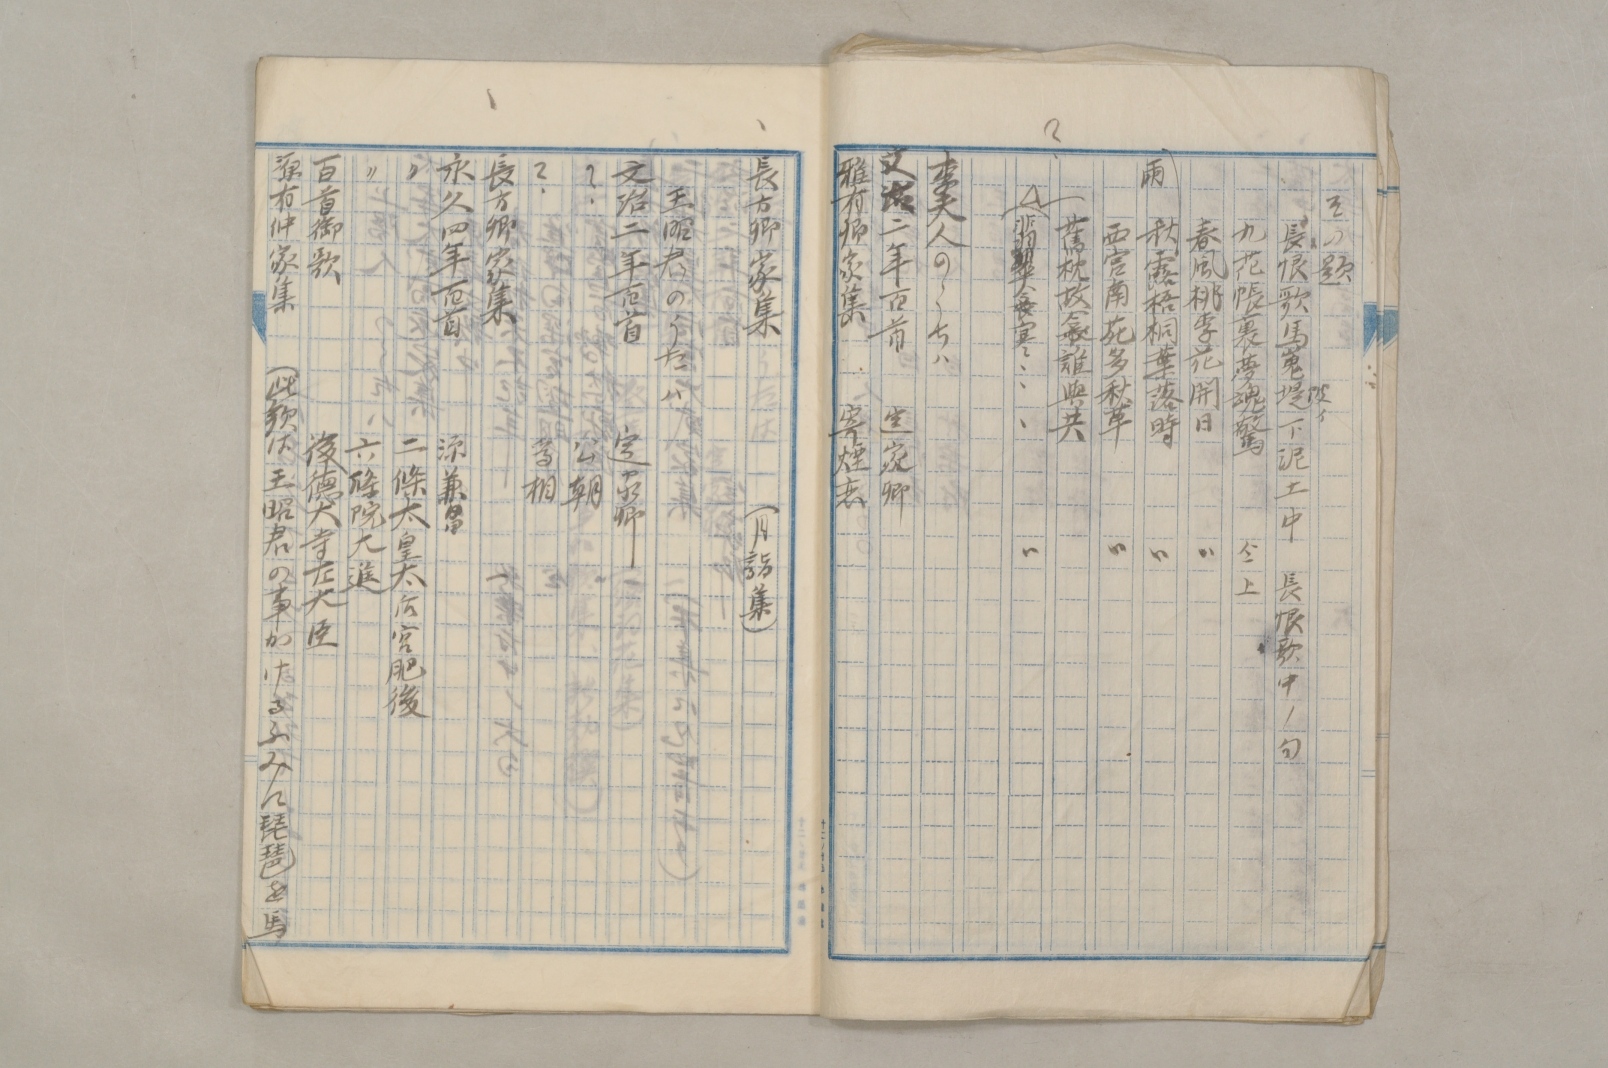 その題
長恨歌馬嵬堤下泥土中　長恨歌中ノ句
九花帳裏夢魂驚　仝上
春風桃李花開日　〃
秋露梧桐葉落時　〃
雨
西宮南苑多秋草　〃
舊枕故衾誰與共
翡翠衾寒ミミヽヽ　〃
李夫人のうちハ
文治二年百首　定家卿
雅有卿家集　寄煙恋
長方卿家集　(月詣集)
王昭君のうたハ
文治二年百首　定家卿
？　公朝
？　為相
長方卿家集
永久四年百首　源兼昌
〃　二條太皇太后宮肥後
〃　六條院大進
百首御歌　後徳大寺左大臣
源有仲家集　(此歌は王昭君の事かけるふみに琵琶を馬